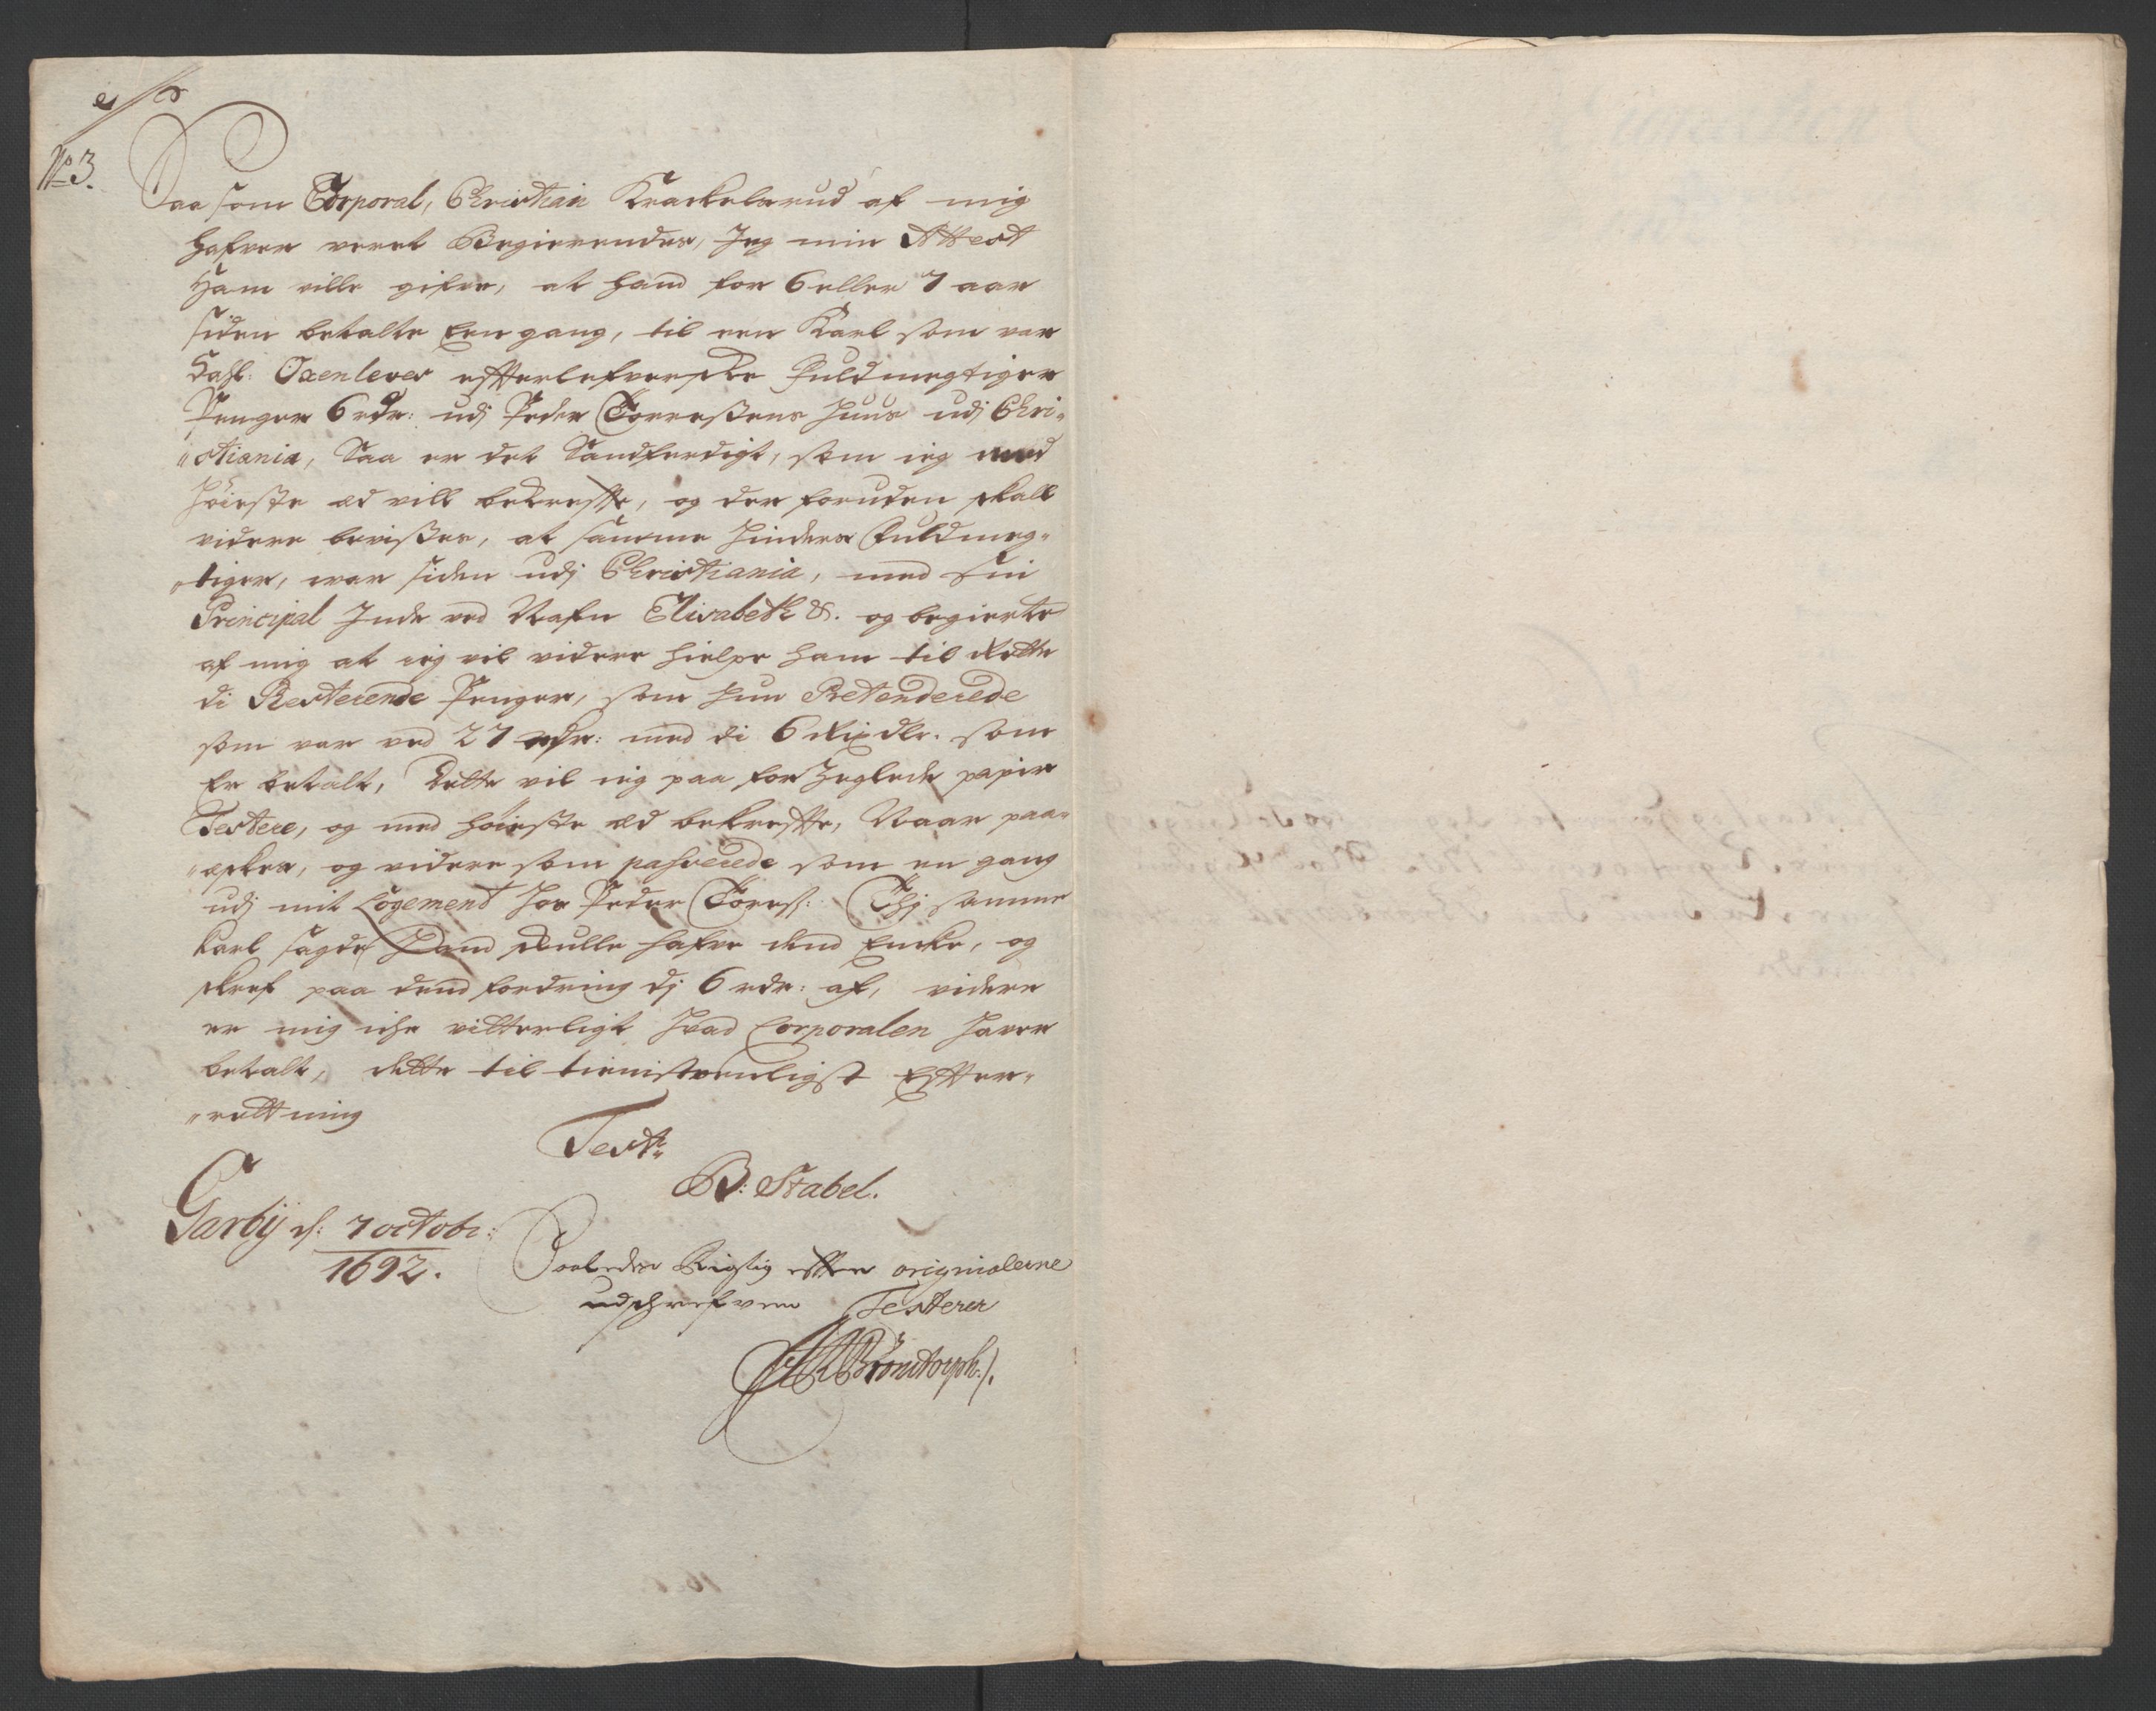 No 3.
Saa som Corporal, Christian Krackelsrud af mig
hafver veret Begierendes, Jeg min Attest
Ham ville gifve, at hand for 6 eller 7 aar
siden betalte Een gang, til een Karl som var
Sahl: Oxenlever effterlefverske Fuldmegtiger
Penger 6 rdr: udj Peder Torressens Huus udj Chri-
stiania, Saa er det Sandferdigt, som ieg med
Høieste æd vill bekreffte, og der foruden skall
videre bevisses, at samme Hinders Fuldmeg-
tiger, war siden udj Christiania, med sin
Principal Inde ved Nafn Elisabeth &. og begierte
af mig at ieg vil videre hielpe ham til Rette
di Resterende Penger, som hun Pretenderede
som var ved 27 rdr: med di 6 Rixdlr. som
Er betalt, Dette vil ieg paa forZeglede papir
Testere, og med høieste æd bekreffte, Naar paa-
æskes, og videre som passerede som en gang
udj mit Logement hos Peder Torress: Thj samme
karl sagde Hand skulle hafve dend Encke, og
skref paa dend fordring dj 6 rdr: af, videre
er mig iche vitterligt hvad Corporalen haver
betalt, dette til tienistvenligst Effter-
rettning
Test:
B: Stabel.
Garbÿ d: 7 octobr:
1692.
Saaledes Rigtig effter originalerne
udschrefven Testerer
Brønstorph.